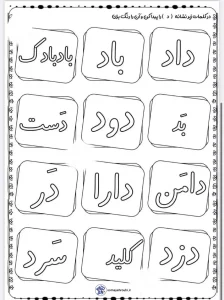 در کلمات زیر نشانه ( د ) را پیدا کن و آن را رنگ بزن
داد باد بادبادک
بَد دود دَست
دامَن دارا دَر
دزد کلید سَرد